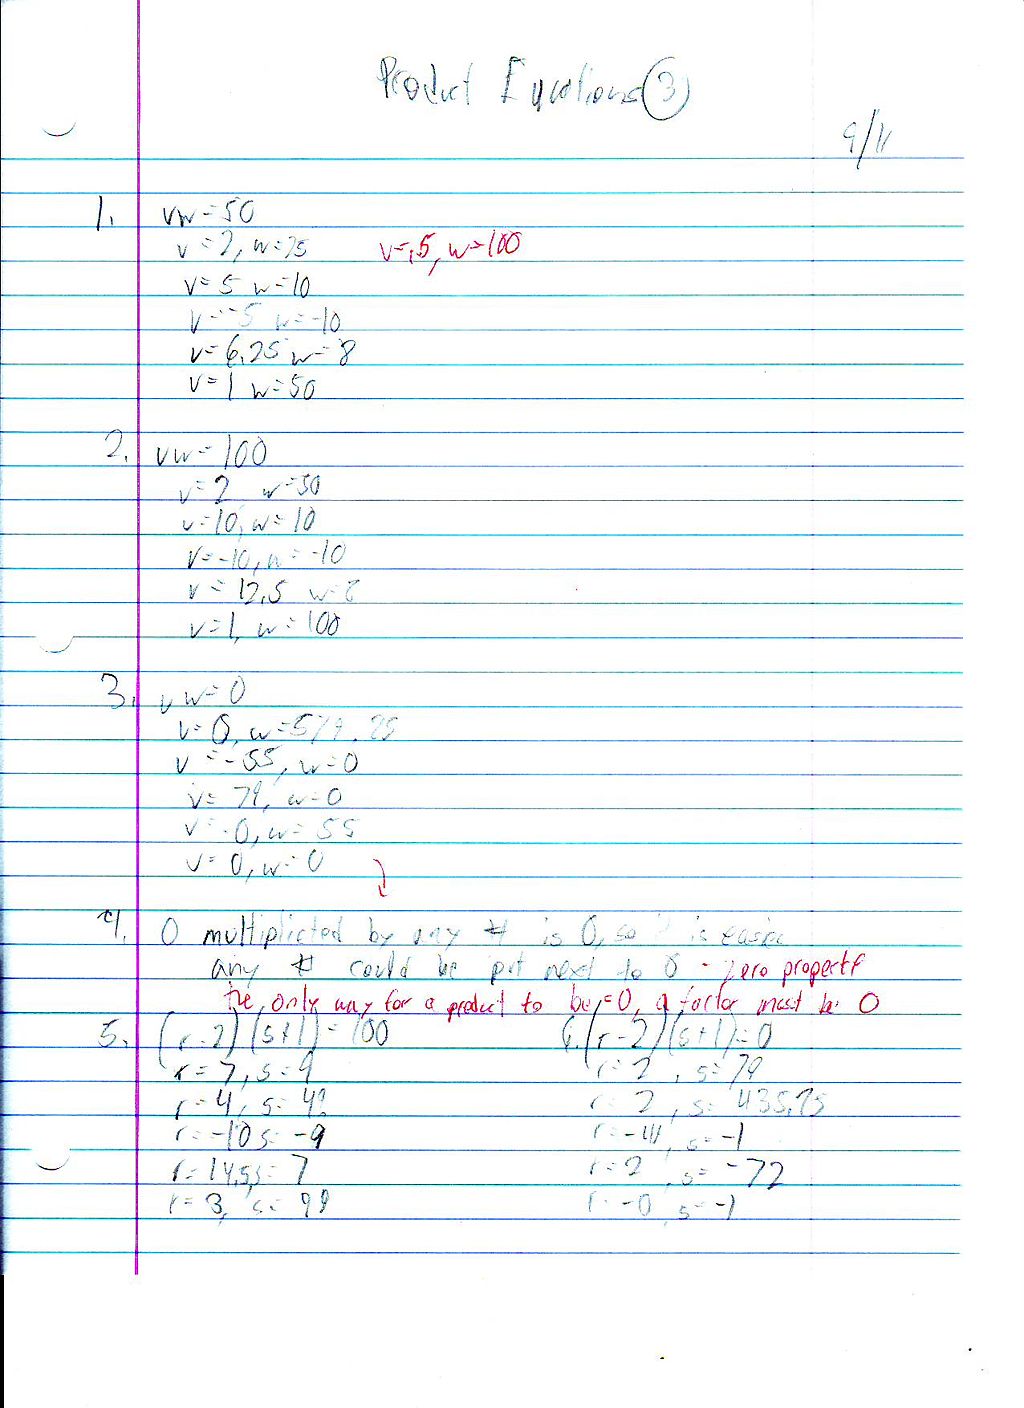 Product Equations 3
9/11
1. vw=50
v=2, w=25 v=.5, w=100
v=5 w=10
v=-5 w=-10
v=6.25 w=8
v=1 w=50
2. vw=100
v=2 w=50
v=10, w=10
v=-10, w=-10
v=12.5 w=8
v=1, w=100
3. vw=0
v=0, w=579.25
v=-55, w=0
v=79, w=0
v=-0, w=55
v=0, w=0
4. 0 multiplicted by any # is 0, so is easier
any # could be put next to 0 - zero property
the only way for a product to be =0, a factor must be 0
5. (r-2)(s+1)=100 6. (r-2)(s+1)=0
r=7, s=9 r=2, s=79
r=4, s=49 r=2, s=435.75
r=-10 s=-9 s=-1
r=14.5, s=7 r=2, s=-72
r=3, s=99 r=-0, s=-1